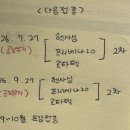 〈다음접종〉
26. 7. 27
헥사심
프리베나20
로타텍
2차
26. 9. 27
헥사심
프리베나20
로타텍
9-10월 독감접종